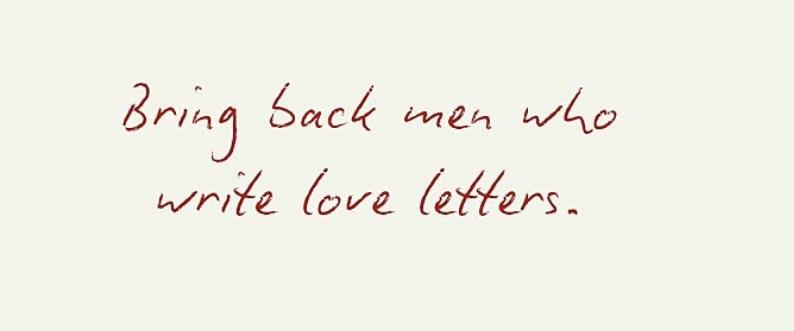 Bring back men who
write love letters.